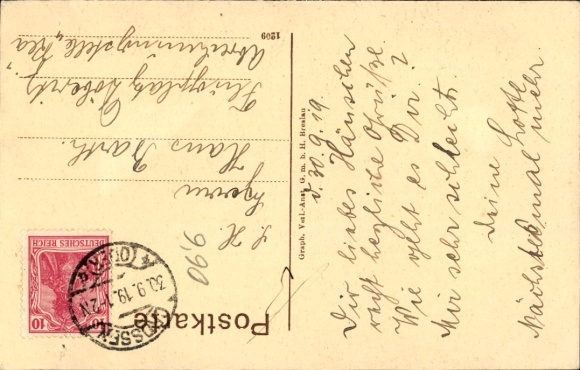 Postkarte
DEUTSCHES REICH
10
CROSSEN
(ODER)
30.9.19.1-2N
9,90
S. H.
Herrn
Hans Barth.
Flugplatz Döberitz
1209
Graph. Verl.-Anst. G. m. b. H. Breslau
d. 30.9.19.
Dir liebes Hänschen
recht herzliche Grüße.
Wie geht es Dir?
Mir sehr schlecht.
Deine Lotte
Nächstesmal mehr.